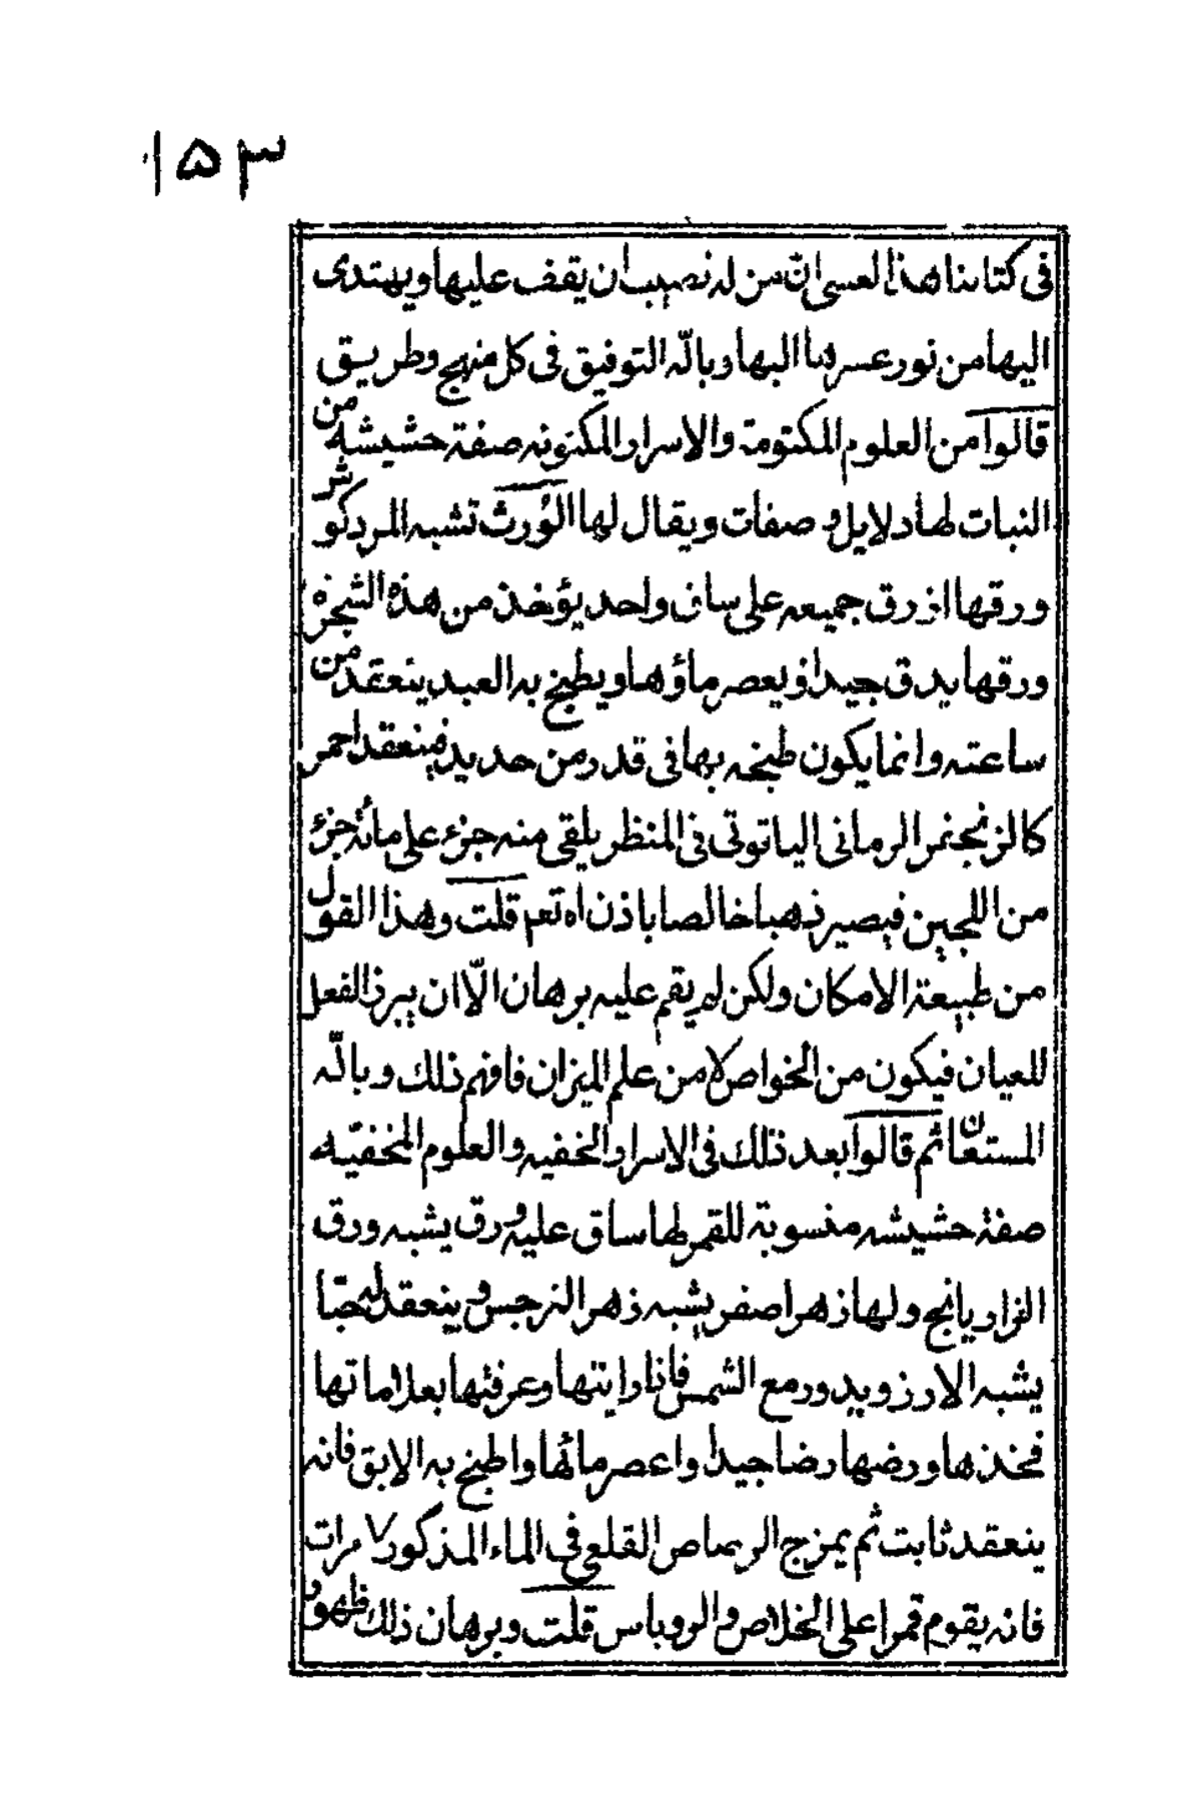 ١٥٣
فى كتابنا هذا لعسى ان من له نصيب ان يقف عليها ويهتدى
اليها من نور عسرها البها وبالله التوفيق فى كل منهج وطريق
قالوا من العلوم المكتومة والاسرار المكنونه صفة حشيشه من
النبات لها دلايل و صفات ويقال لها الورث تشبه المردكوش
ورقها ازرق جميعه على ساق واحد يؤخذ من هذه الشجره
ورقها يدق جيدا و يعصر ماؤها ويطبخ به العبد ينعقد من
ساعته وانما يكون طبخه بها فى قدر من حديد فينعقد احمر
كالزنجفر الرمانى الياقوتى فى المنظر يلقى منه جزء على مائة جزء
من اللجين فيصير ذهبا خالصا باذن اه تعم قلت وهذا القول
من طبيعة الامكان ولكن لم يقم عليه برهان الّا ان يبرز الفعل
للعيان فيكون من الخواص لا من علم الميزان فافهم ذلك وبالله
المستعان ثم قالوا بعد ذلك فى الاسرار الخفيه والعلوم المخفيّه
صفة حشيشه منسوبة للقمر لها ساق عليه ورق يشبه ورق
الزاويانج ولها زهر اصفر يشبه زهر النرجس و ينعقد له حبّا
يشبه الارز ويدور مع الشمس فاذا رايتها وعرفتها بعلاماتها
فخذها ورضها رضا جيدا واعصر مائها واطبخ به الابق فانه
ينعقد ثابت ثم يمزج الرصاص القلعى فى الماء المذكور ٧ مرات
فانه يقوم قمرا على الخلاص والروباس قلت وبرهان ذلك ظهور